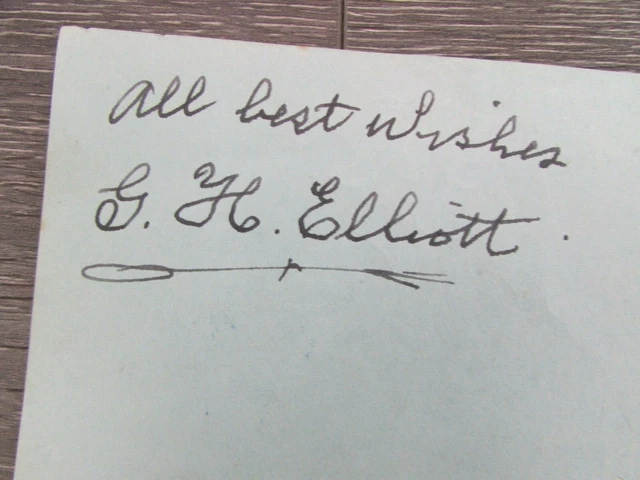 All best wishes
G. H. Elliott.